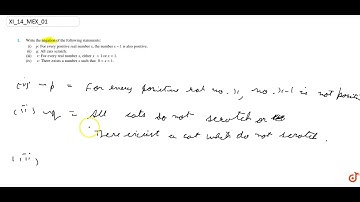 XI_14_MEX_01
2. Write the negation of the following statements:
(i) p: For every positive real number x, the number x – 1 is also positive.
(ii) q: All cats scratch.
(iii) r: For every real number x, either x > 1 or x < 1.
(iv) s: There exists a number x such that 0 < x < 1.
(i) ~p = For every positive real no. x, no. x-1 is not positi
(ii) ~q = All cats do not scratch or
There exist a cat which do not scratch.
(iii)
doubtnut